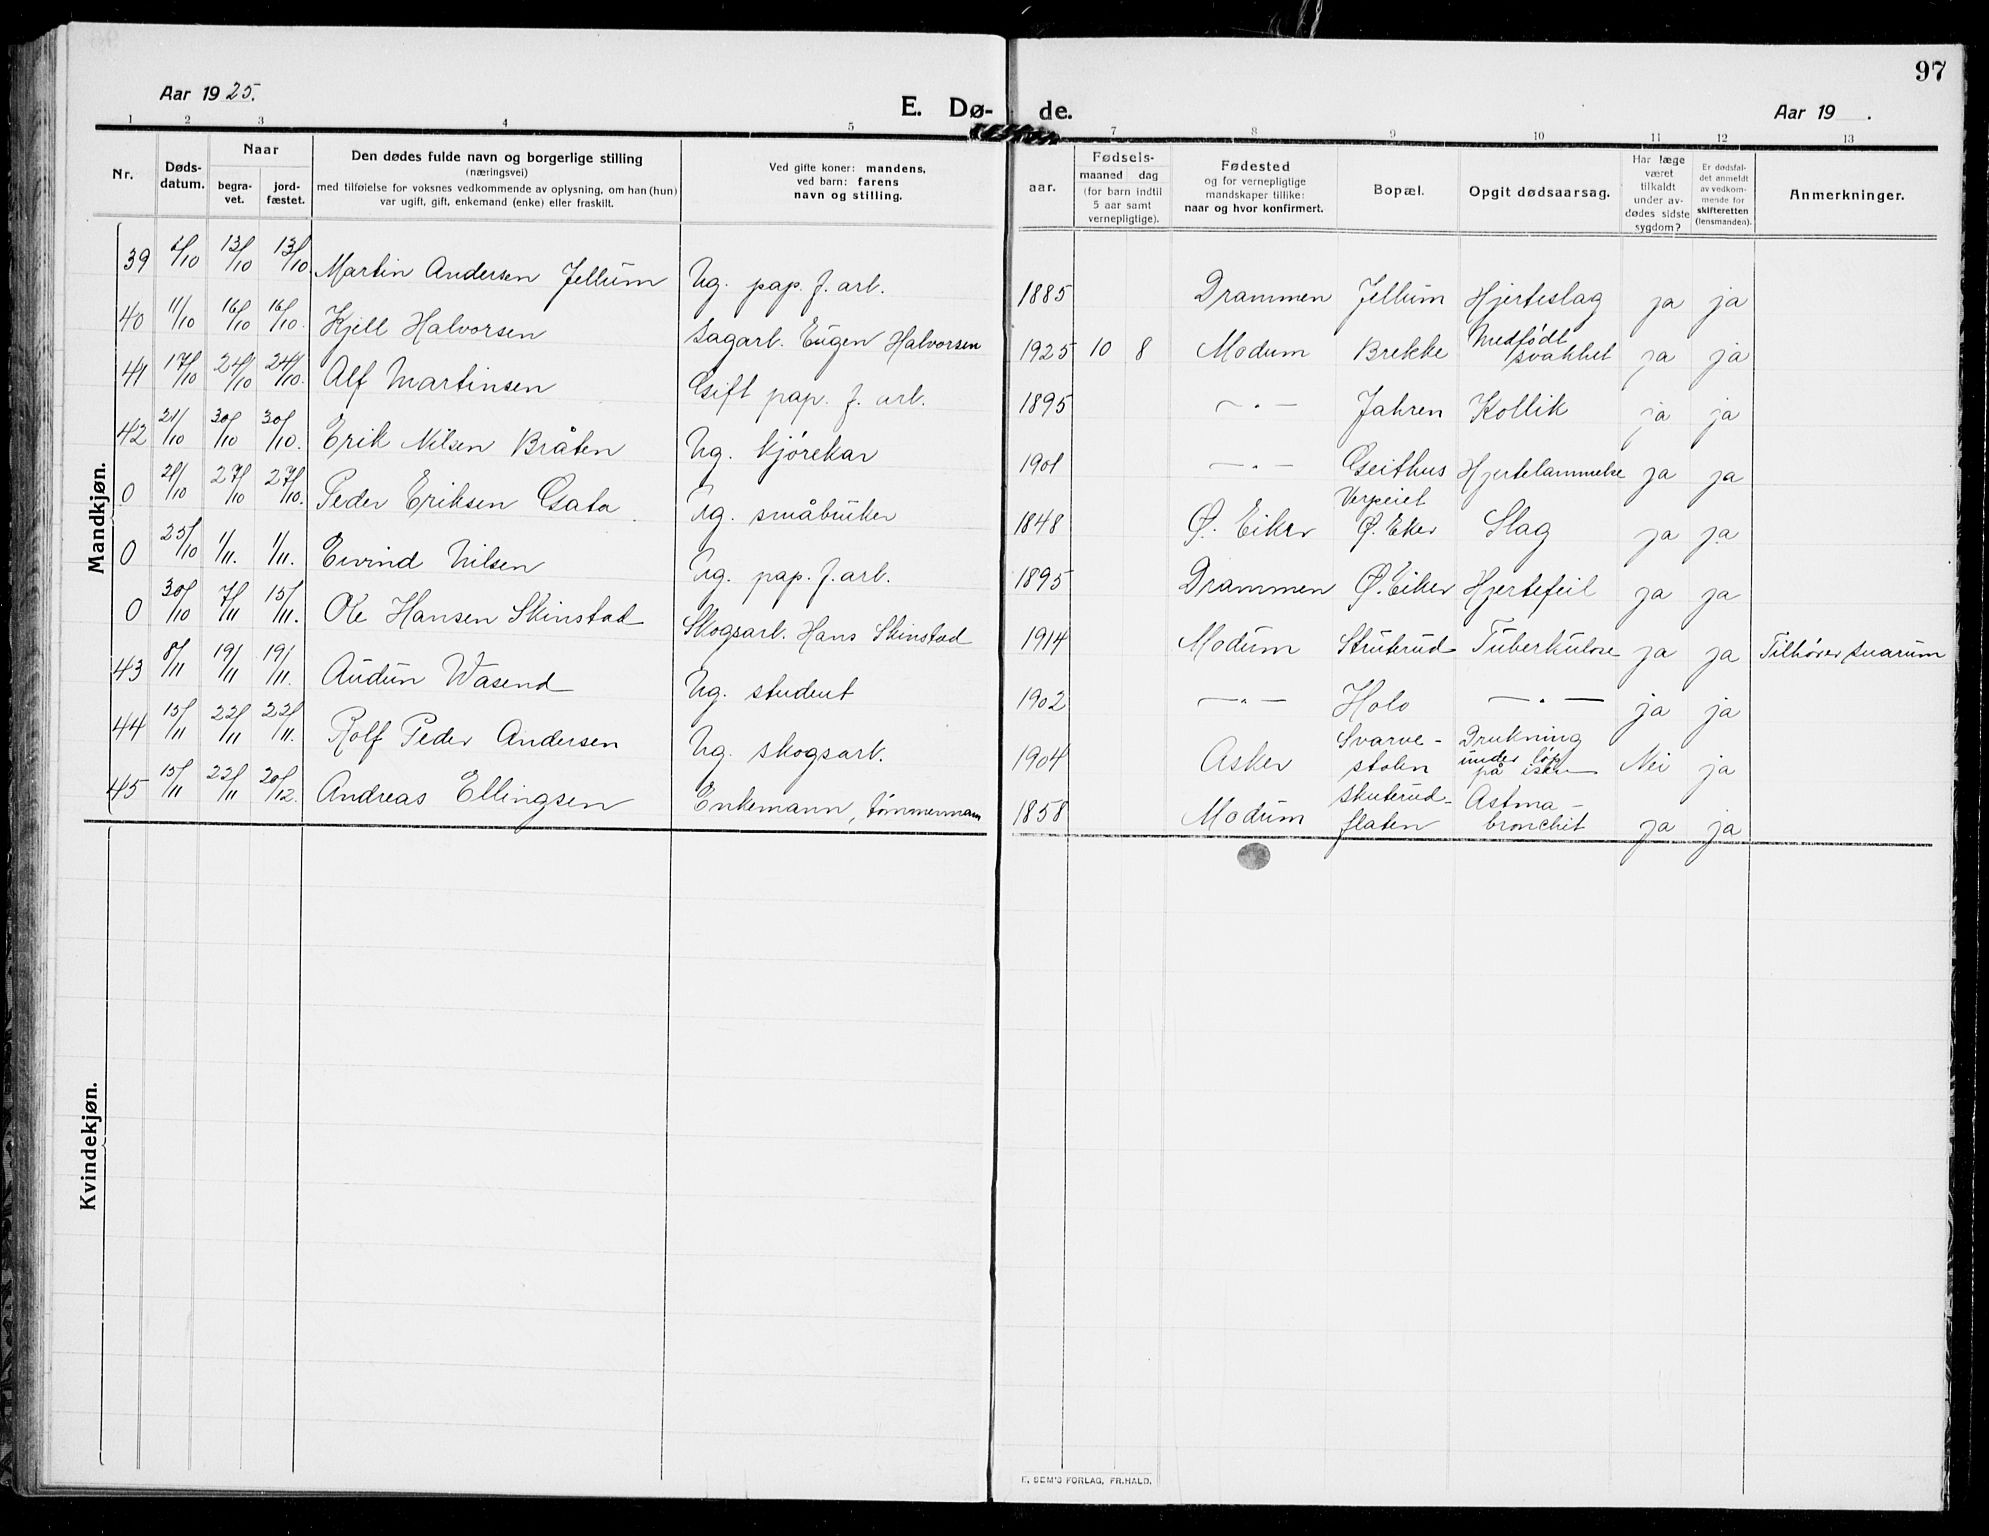 97
Aar 1925.
E. Dø- de.
Aar 19 .
1 2 3 4 5 7 8 9 10 11 12 13
Nr.
Døds-
datum.
Naar
begra-
vet.
jord-
fæstet.
Den dødes fulde navn og borgerlige stilling
(næringsvei)
med tilføielse for voksnes vedkommende av oplysning, om han (hun)
var ugift, gift, enkemand (enke) eller fraskilt.
Ved gifte koner: mandens,
ved barn: farens
navn og stilling.
aar.
Fødsels-
maaned dag
(for barn indtil
5 aar samt
vernepligtige).
Fødested
og for vernepligtige
mandskaper tillike:
naar og hvor konfirmert.
Bopæl.
Opgit dødsaarsag.
Har læge
været
tilkaldt
under av-
dødes sidste
sygdom?
Er dødsfal-
det anmeldt
av vedkom-
mende for
skifteretten
(lensmanden).
Anmerkninger.
Mandkjøn.
39 6/10 13/10 13/10. Martin Andersen Jellum Ug. pap. f. arb. 1885 Drammen Jellum Hjerteslag ja ja
40 11/10 16/10 16/10. Kjell Halvorsen Sagarb. Eugen Halvorsen 1925 10 8 Modum Brekke Medfødt svakhet ja ja
41 17/10 24/10 24/10. Alf Martinsen Gift pap. f. arb. 1895 — " — Jahren Kollik ja ja
42 21/10 30/10 30/10. Erik Nilsen Bråten Ug. kjørekar 1901 — " — Geithus Hjertelammelse ja ja
0 21/10 27/10 27/10. Peder Eriksen Gata Ug. småbruker 1848 Ø. Eiker Verpeiet Ø. Eker Slag ja ja
0 25/10 1/11. 1/11. Eivind Nilsen Ug. pap. f. arb. 1895 Drammen Ø. Eiker Hjertefeil ja ja
0 30/10 7/11 15/11. Ole Hansen Skinstad Skogsarb. Hans Skinstad 1914 Modum Struterud Tuberkulose ja ja Tilhører Snarum
43 8/11 19/11 19/11. Audun Wasend Ug. student 1902 — " — Holo — " — ja ja
44 15/11 22/11 22/11. Rolf Peder Andersen Ug. skogsarb. 1904 Asker Svarve-stolen Drukning under løp på isen Nei ja
45 15/11 22/11 20/12. Andreas Ellingsen Enkemann, tømmermann 1858 Modum Skuterud-flaten Astma-bronchit ja ja
Kvindekjøn.
E. SEM'S FORLAG, FR.HALD.